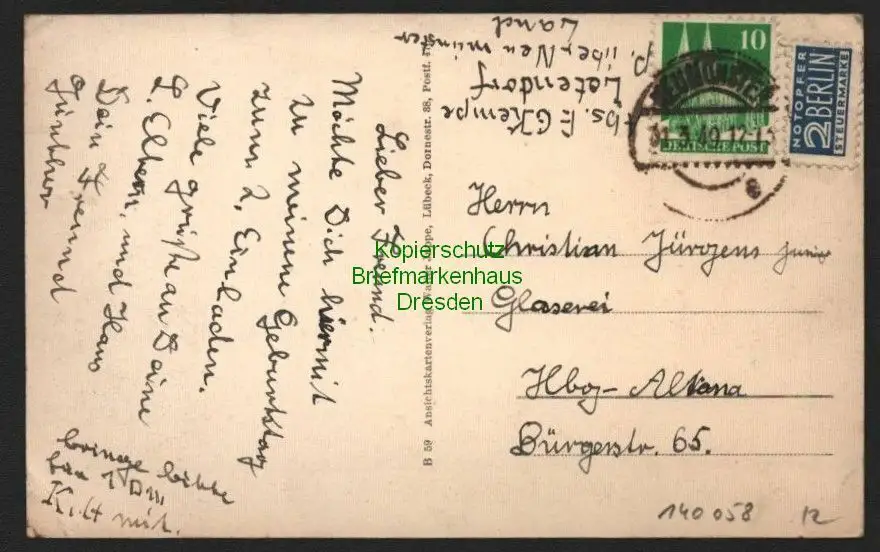 Lieber Freund.
Möchte Dich hiermit
zu meinem Geburtstag
zum 2. Einladen.
Viele grüße an Deine
L. Eltern, und Haus
Dein Freund
Günther
bringe bitte
für 1 DM
mit.
B 59 Ansichtskartenverlag Walter Lübeck, Dornestr. 38, Postf.
bs. E. G. Kempe
Latendorf
p. über Neumünster
Land
10
DEUTSCHE POST
NEUMÜNSTER
31.3.49.17-
NOTOPFER
2 BERLIN
STEUERMARKE
Herrn
Christian Jürgens junior
Glaserei
Hbg-Altona
Bürgerstr. 65.
140 058
12
Kopierschutz
Briefmarkenhaus
Dresden